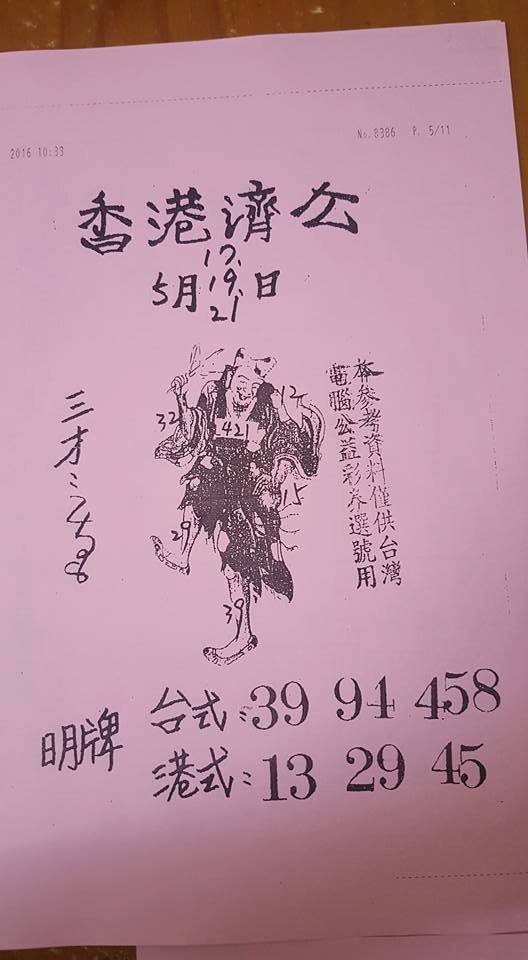 2016 10:33
No.8386 P. 5/11
香港濟公
5月17.19.21日
本參考資料僅供台灣
電腦公益彩券選號用
32
12
421
15
29
39
三才:
明牌
台式:39 94 458
港式:13 29 45